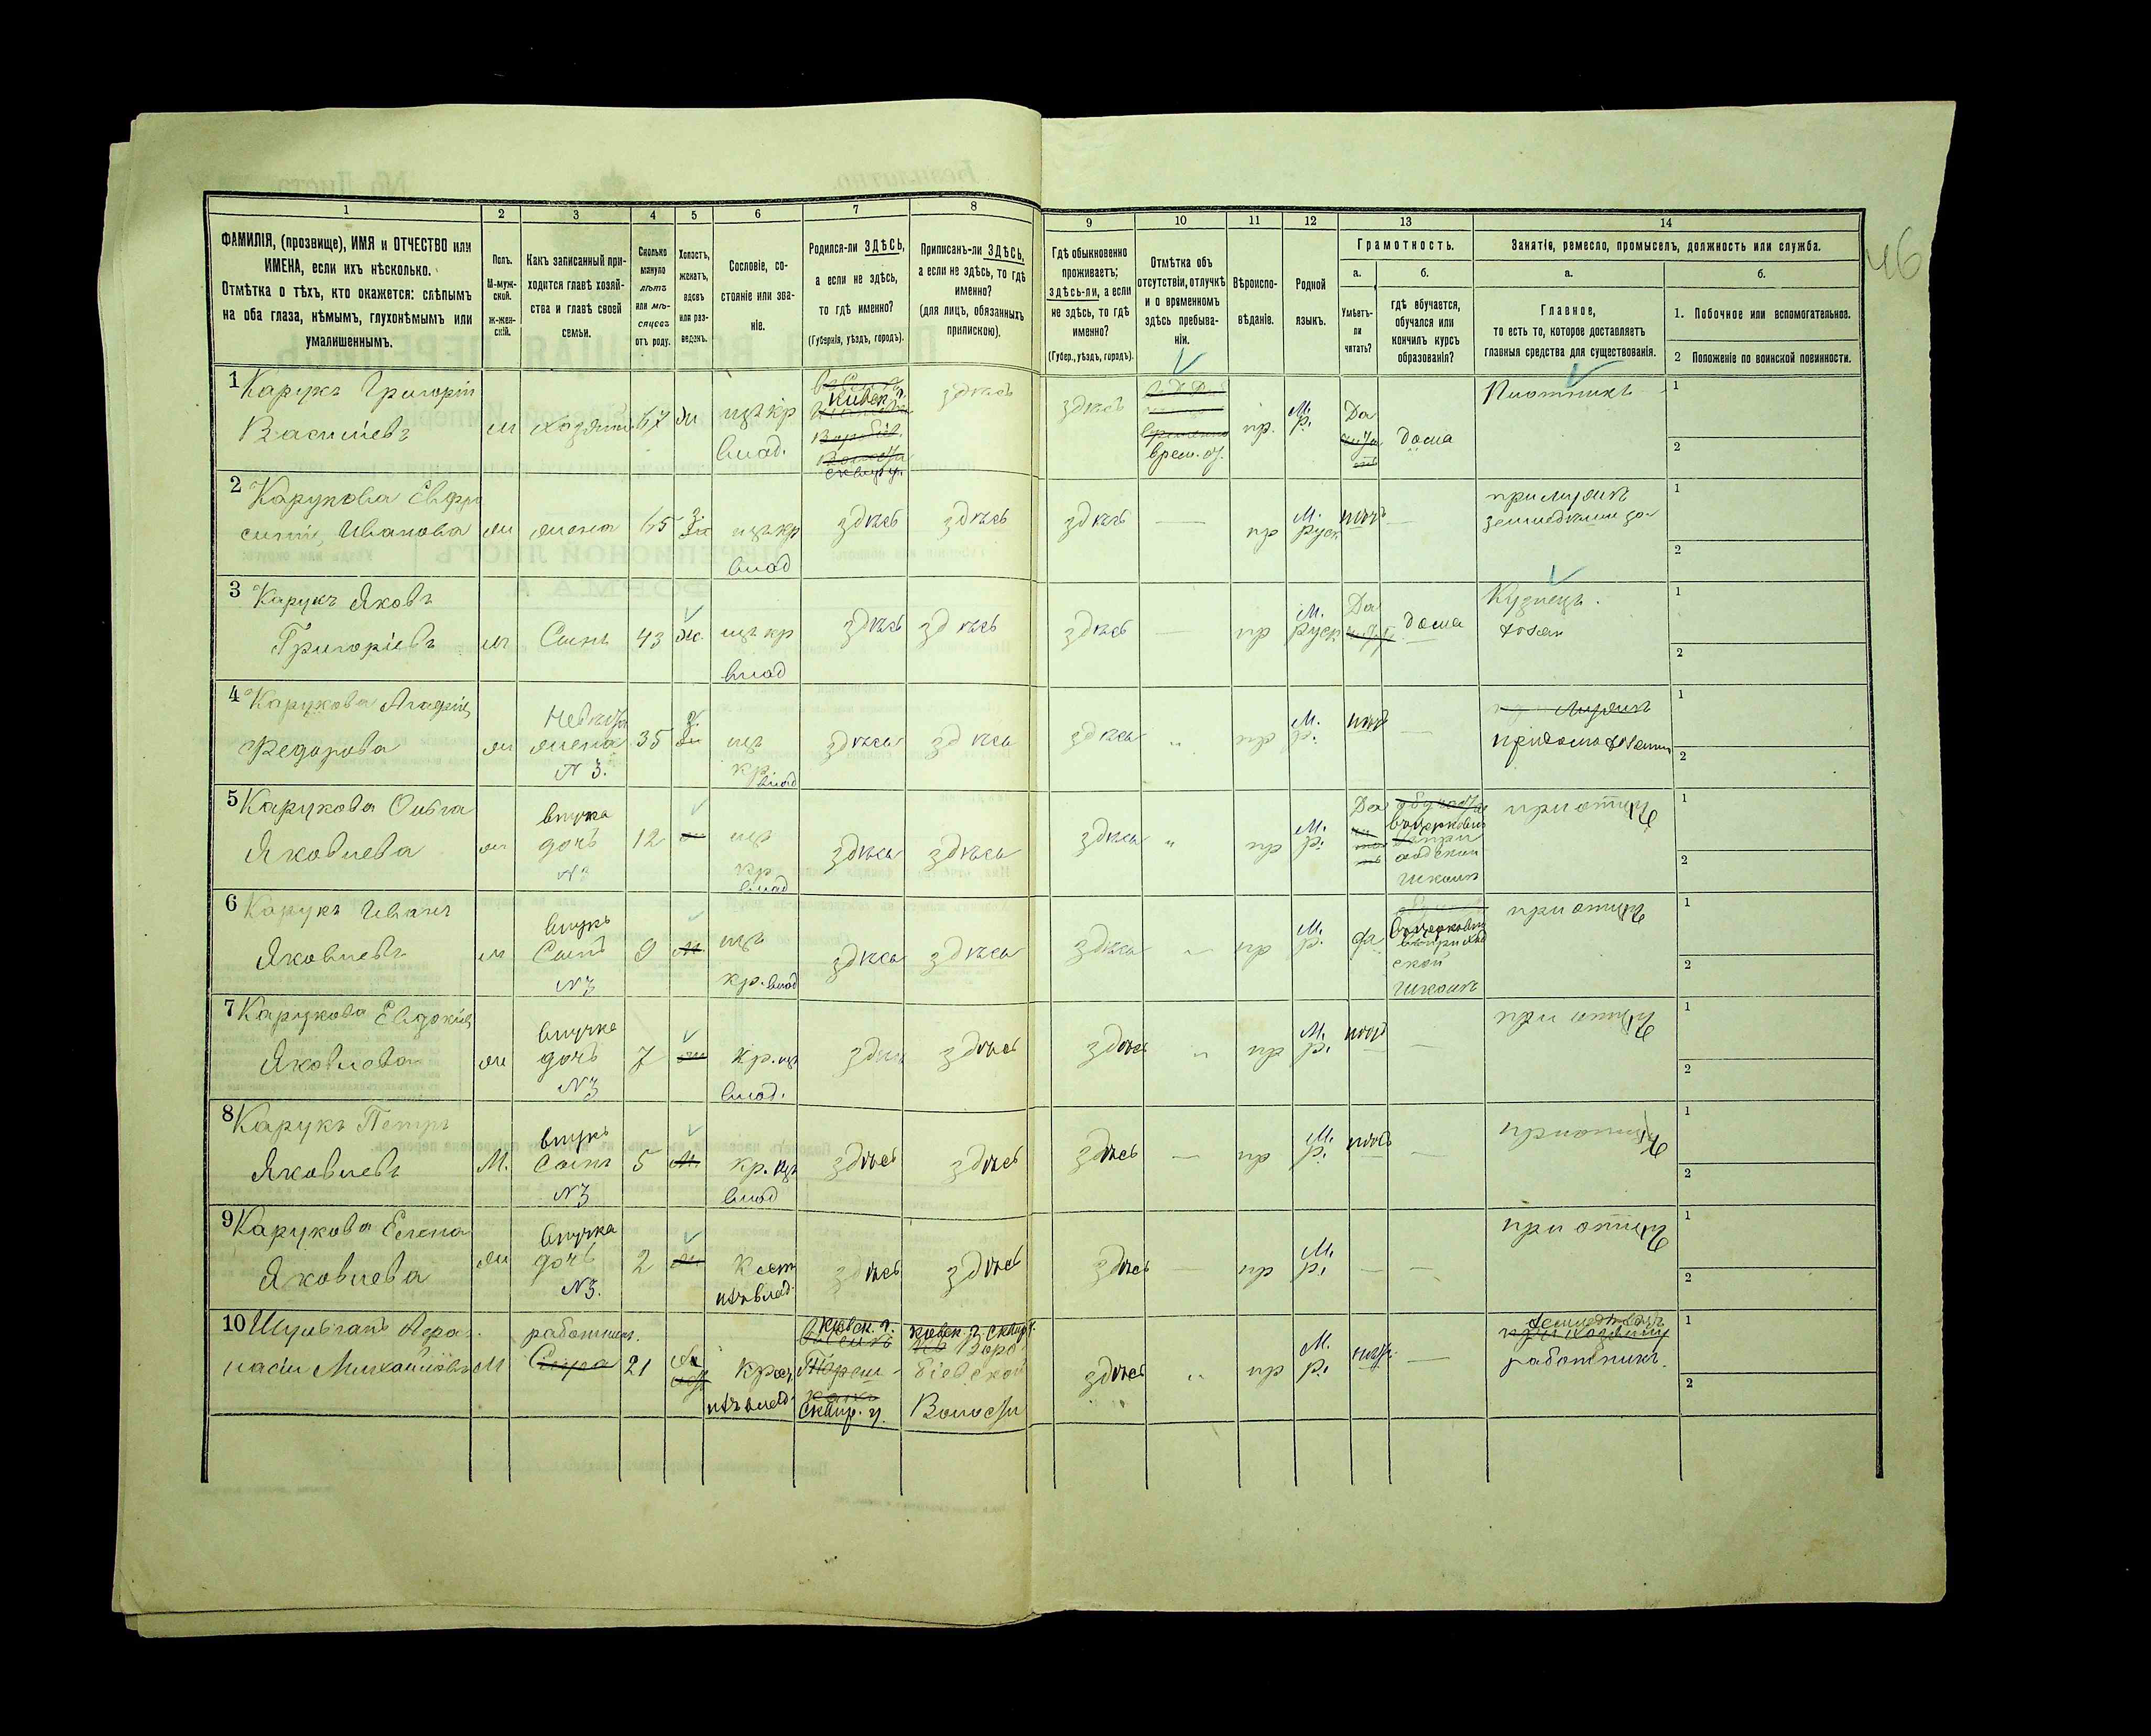 46
1
2
3
4
5
6
7
8
9
10
11
12
13
14
ФАМИЛІЯ, (прозвище), ИМЯ и ОТЧЕСТВО или
ИМЕНА, если ихъ нѣсколько.
Отмѣтка о тѣхъ, кто окажется: слѣпымъ
на оба глаза, нѣмымъ, глухонѣмымъ или
умалишеннымъ.
Полъ.
М-муж-
ской.
Ж-жен-
скій.
Какъ записанный при-
ходится главѣ хозяй-
ства и главѣ своей
семьи.
Сколько
минуло
лѣтъ
или мѣ-
сяцевъ
отъ роду.
Холостъ,
женатъ,
вдовъ
или раз-
веденъ.
Сословіе, со-
стояніе или зва-
ніе.
Родился-ли ЗДѢСЬ,
а если не здѣсь,
то гдѣ именно?
(Губернія, уѣздъ, городъ).
Приписанъ-ли ЗДѢСЬ,
а если не здѣсь, то гдѣ
именно?
(для лицъ, обязанныхъ
припискою).
Гдѣ обыкновенно
проживаетъ;
здѣсь-ли, а если
не здѣсь, то гдѣ
именно?
(Губер., уѣздъ, городъ).
Отмѣтка объ
отсутствіи, отлучкѣ
и о временномъ
здѣсь пребыва-
ніи.
Вѣроиспо-
вѣданіе.
Родной
языкъ.
Грамотность.
а.
Умѣетъ-
ли
читать?
б.
гдѣ обучается,
обучался или
кончилъ курсъ
образованія?
Занятіе, ремесло, промыселъ, должность или служба.
а.
Главное,
то есть то, которое доставляетъ
главныя средства для существованія.
б.
1. Побочное или вспомогательное.
2 Положеніе по воинской повинности.
1 Карукъ Григорій
Васильевъ
м хозяинъ 67 ж
изъ кр
влад.
Кіевск. г.
Сквир. у.
здѣсь
здѣсь
врем. от.
пр.
М.
р.
Да
дома
Плотникъ
1
2
2 Карукова Евфро
синія Иванова
ж жена 65 з
изъ кр
влад
здѣсь здѣсь здѣсь — пр
М.
руск
нѣтъ —
при мужѣ
1
2
3 Карукъ Яковъ
Григорьевъ
м Сынъ 43 ж.
изъ кр
влад
здѣсь здѣсь здѣсь — пр
М.
руск
Да
дома
Кузнецъ.
1
2
4 Карукова Агафія
Федорова
ж
Невѣстка
жена
N 3.
35 з.
изъ
кр.
влад
здѣсь здѣсь здѣсь " пр
М.
р.
нѣтъ —
1
2
5 Карукова Ольга
Яковлева
ж
внучка
дочь
N3
12
изъ
кр
влад
здѣсь здѣсь здѣсь " пр
М.
р.
Да
въ церковно
приход
ской
школѣ
при отцѣ
1
2
6 Карукъ Иванъ
Яковлевъ
м
внукъ
Сынъ
N3
9
изъ
кр. влад
здѣсь здѣсь здѣсь " пр
М.
р.
да
въ церковно
приход
ской
школѣ
при отцѣ
1
2
7 Карукова Евдокія
Яковлева
ж
внучка
дочь
N3
7
кр. изъ
влад.
здѣсь здѣсь здѣсь " пр
М.
р.
нѣтъ —
при отцѣ
1
2
8 Карукъ Петръ
Яковлевъ
М.
внукъ
Сынъ
N3
5
кр. изъ
влад
здѣсь здѣсь здѣсь — пр
М.
р.
нѣтъ —
при отцѣ
1
2
9 Карукова Елена
Яковлева
ж
внучка
дочь
N3.
2
Крест
изъ влад.
здѣсь здѣсь здѣсь — пр
М.
р.
— —
при отцѣ
1
2
10 Шульганъ Афа-
насій Михайловъ
М
работникъ.
21
Крест
изъ влад.
Кіевск. г.
Сквир. у.
Кіевск. г. Сквир. у.
Волости
здѣсь " пр
М.
р.
нѣтъ —
работникъ.
1
2